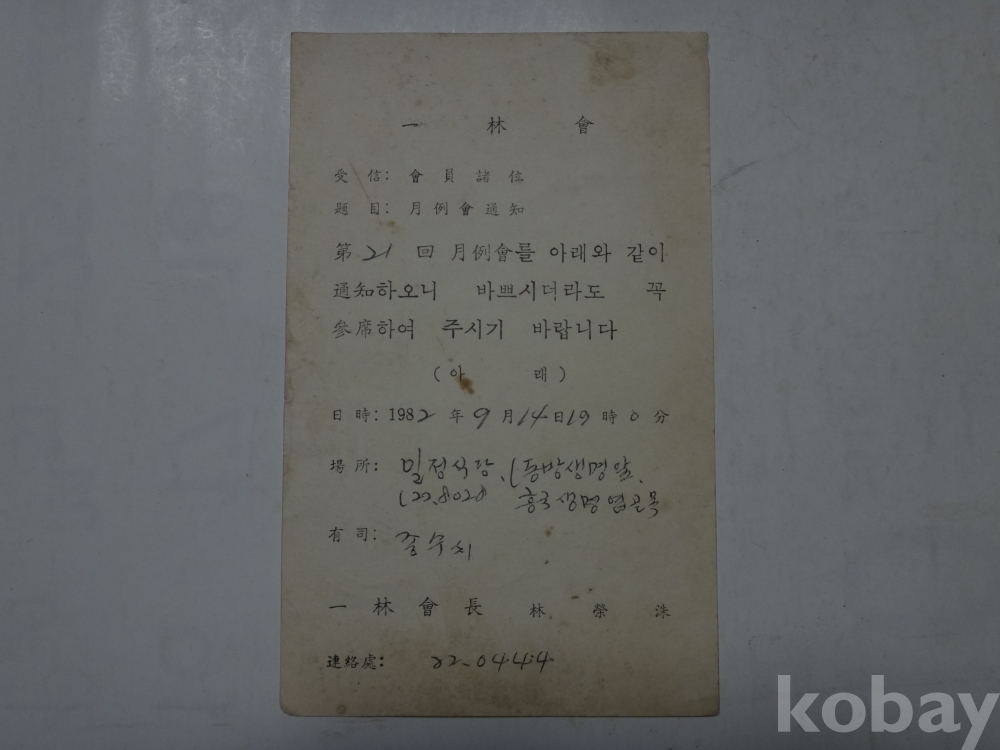 一 林 會
受 信: 會 員 諸 位
題 目: 月 例 會 通 知
第 21 回 月例會를 아래와 같이
通知하오니 바쁘시더라도 꼭
參席하여 주시기 바랍니다
(아 래)
日 時: 1982 年 9 月 14 日 19 時 0 分
場 所: 밀정식당, (동방생명앞,
(22.8028 흥국생명옆골목
有 司: 종수씨
一 林 會 長 林 榮 洙
連絡處: 22-0444
kobay